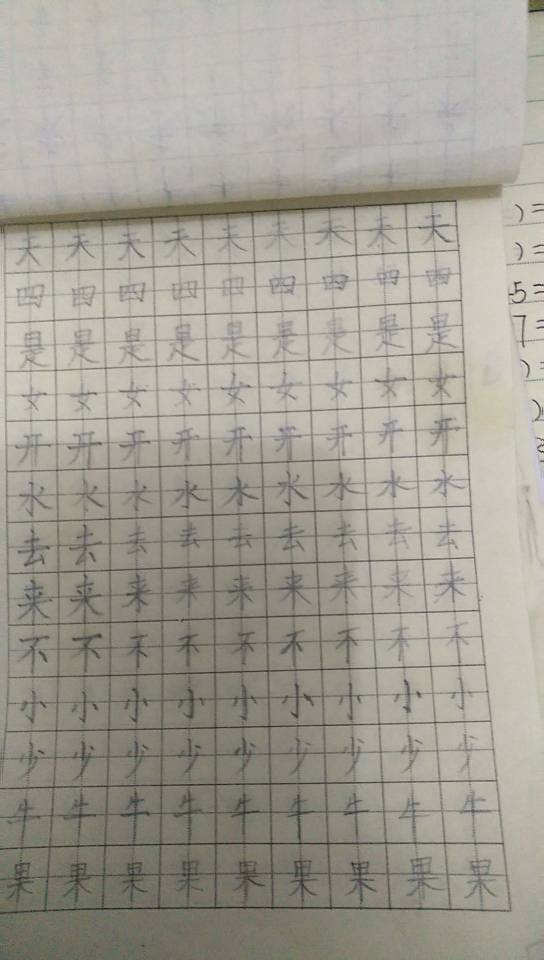 天天天天天天天天天
四四四四四四四四四
是是是是是是是是是
女女女女女女女女女
开开开开开开开开开
水水水水水水水水水
去去去去去去去去去
来来来来来来来来来
不不不不不不不不不
小小小小小小小小小
少少少少少少少少少
牛牛牛牛牛牛牛牛牛
果果果果果果果果果
)=
)=
5=
7=
)=
)